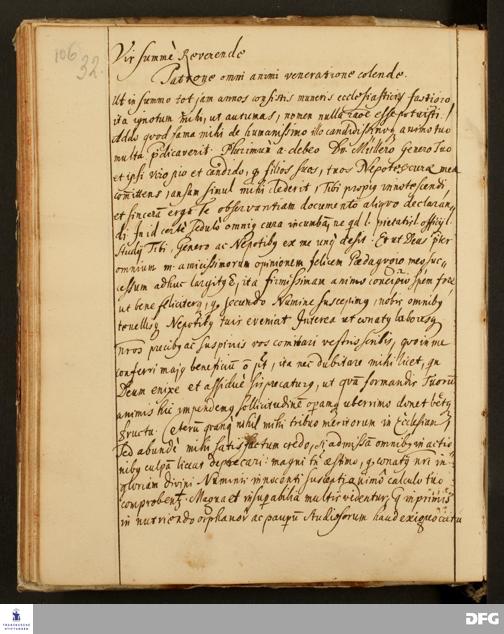 106
32.
Vir summè Reverende
Patrone omni animi veneratione colende.
Ut in summo tot jam annos consistis muneris ecclesiastici fastigio,
ita ignotum mihi, ut autumas, nomen nullo
Addo quod fama mihi de humanissimo illo candidissimoq animo tuo
multa pdicaverit. Plurimum a. debeo Dn. Müllero Genero Tuo
et ipsi viro pio et candido, q filios suos, tuos Nepotes curæ meæ
comittens, ansam simul mihi dederit, Tibi propiq innotescendi,
et sincera erga Te observantiam documento aliquo declaran,,
di. In id certè sedulò omniq cura incumbā, ne qd l. pietatis l. officij l.
studij Tibi, Genero ac Nepotibq ex me unq desit. Et ut Deus super
omnium m. amicissimorum opinionem felicem Pædagogio meo suc,,
cessum adhuc largitq E, ita firmissimam animo concipio spem fore
ut bene feliciterq, q, secundo Numine suscepimq, nobis omnibq
tenellisq Nepotibq tuis eveniat. Interea ut conatq laboresq
nros precibq ac suspiriis vos comitari vestris soletis, quo in me
conferri majq beneficiū ō pt, ita nec dubitare mihi licet, qn
Deum enixe et assiduè sis precaturq, ut qvā formandis Tuorū
animis hic impendemq sollicitudinē operamq uberrimo donet beetq
fructu. Ceterū quanq nihil mihi tribuo meritorum in Ecclesiam,
sed abundè mihi satisfactum credo, si admissā omnibq in actio
nibq culpā liceat deprecari: magni tn æstimo, q, conatq nri in
gloriam divini Numinis innocenti suscepti animo calculo tuo
comprobentq. Magna et insuperabilia multis videntur, q inprimis
in nutriendo orphanorū ac pauperū studiosorum haud exiguo cœtu
TRANSKRIBUS
DFG